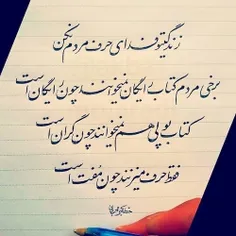 زندگیتو فدای حرف مردم نکن
برخی مردم کتاب رایگان نمیخوانند چون رایگان است
کتاب پولی هم نمیخوانند چون گران است
فقط حرف میزنند چون مفت است